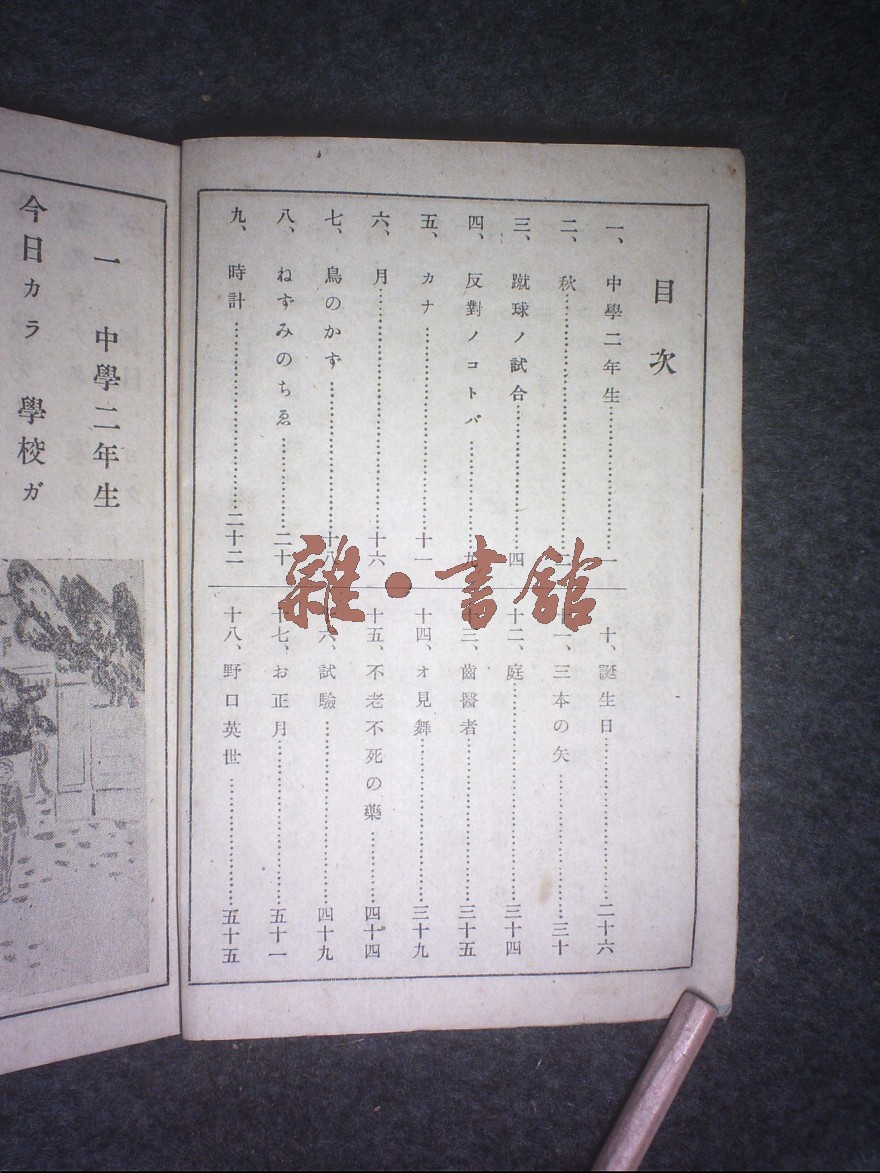 目次
一、中學二年生…一
二、秋…二
三、蹴球ノ試合…四
四、反對ノコトバ…九
五、カナ…十一
六、月…十六
七、鳥のかず…十八
八、ねずみのちゑ…二十
九、時計…二十二
十、誕生日…二十六
十一、三本の矢…三十
十二、庭…三十四
十三、齒醫者…三十五
十四、オ見舞…三十九
十五、不老不死の藥…四十四
十六、試驗…四十九
十七、お正月…五十一
十八、野口英世…五十五
一 中學二年生
今日カラ 學校ガ
雜·書館